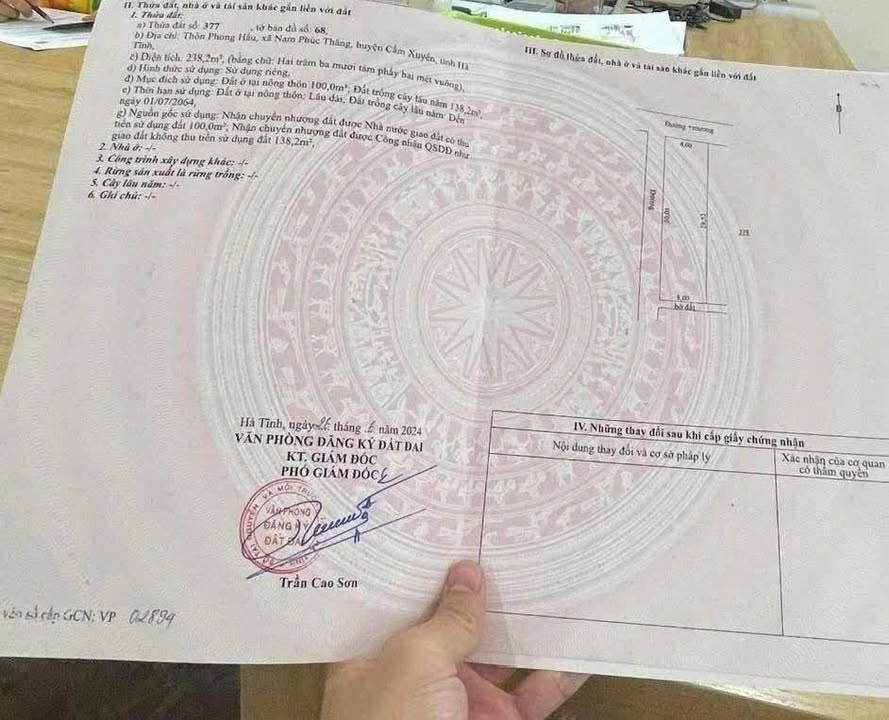 II. Thửa đất, nhà ở và tài sản khác gắn liền với đất
1. Thửa đất:
a) Thửa đất số: 377 , tờ bản đồ số: 68,
b) Địa chỉ: Thôn Phong Hầu, xã Nam Phúc Thăng, huyện Cẩm Xuyên, tỉnh Hà
Tĩnh,
c) Diện tích: 238,2m², (bằng chữ: Hai trăm ba mươi tám phẩy hai mét vuông),
d) Hình thức sử dụng: Sử dụng riêng,
đ) Mục đích sử dụng: Đất ở tại nông thôn 100,0m²; Đất trồng cây lâu năm 138,2m²,
e) Thời hạn sử dụng: Đất ở tại nông thôn: Lâu dài; Đất trồng cây lâu năm: Đến
ngày 01/07/2064,
g) Nguồn gốc sử dụng: Nhận chuyển nhượng đất được Nhà nước giao đất có thu
tiền sử dụng đất 100,0m²; Nhận chuyển nhượng đất được Công nhận QSDĐ như
giao đất không thu tiền sử dụng đất 138,2m²,
2. Nhà ở: -/-
3. Công trình xây dựng khác: -/-
4. Rừng sản xuất là rừng trồng: -/-
5. Cây lâu năm: -/-
6. Ghi chú: -/-
III. Sơ đồ thửa đất, nhà ở và tài sản khác gắn liền với đất
B
Đường
8,00
Đường
30,01
29,52
228
8,00
bờ đất
Hà Tĩnh, ngày 26 tháng 6 năm 2024
VĂN PHÒNG ĐĂNG KÝ ĐẤT ĐAI
KT. GIÁM ĐỐC
PHÓ GIÁM ĐỐC
VĂN PHÒNG
ĐĂNG KÝ
ĐẤT ĐAI
Trần Cao Sơn
IV. Những thay đổi sau khi cấp giấy chứng nhận
Nội dung thay đổi và cơ sở pháp lý
Xác nhận của cơ quan
có thẩm quyền
số cấp GCN: VP 02894